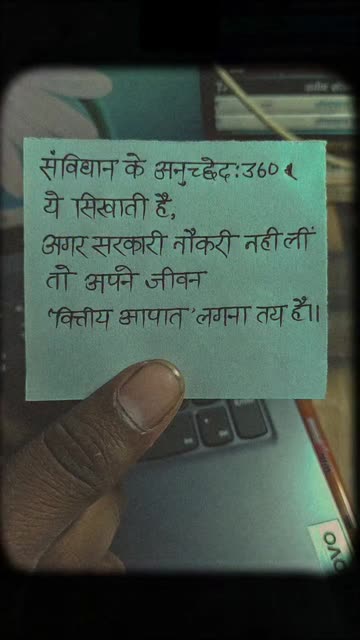 संविधान के अनुच्छेद:360
ये सिखाती है,
अगर सरकारी नौकरी नही लीं
तो अपने जीवन
'वित्तीय आपात' लगना तय है।।
OVO